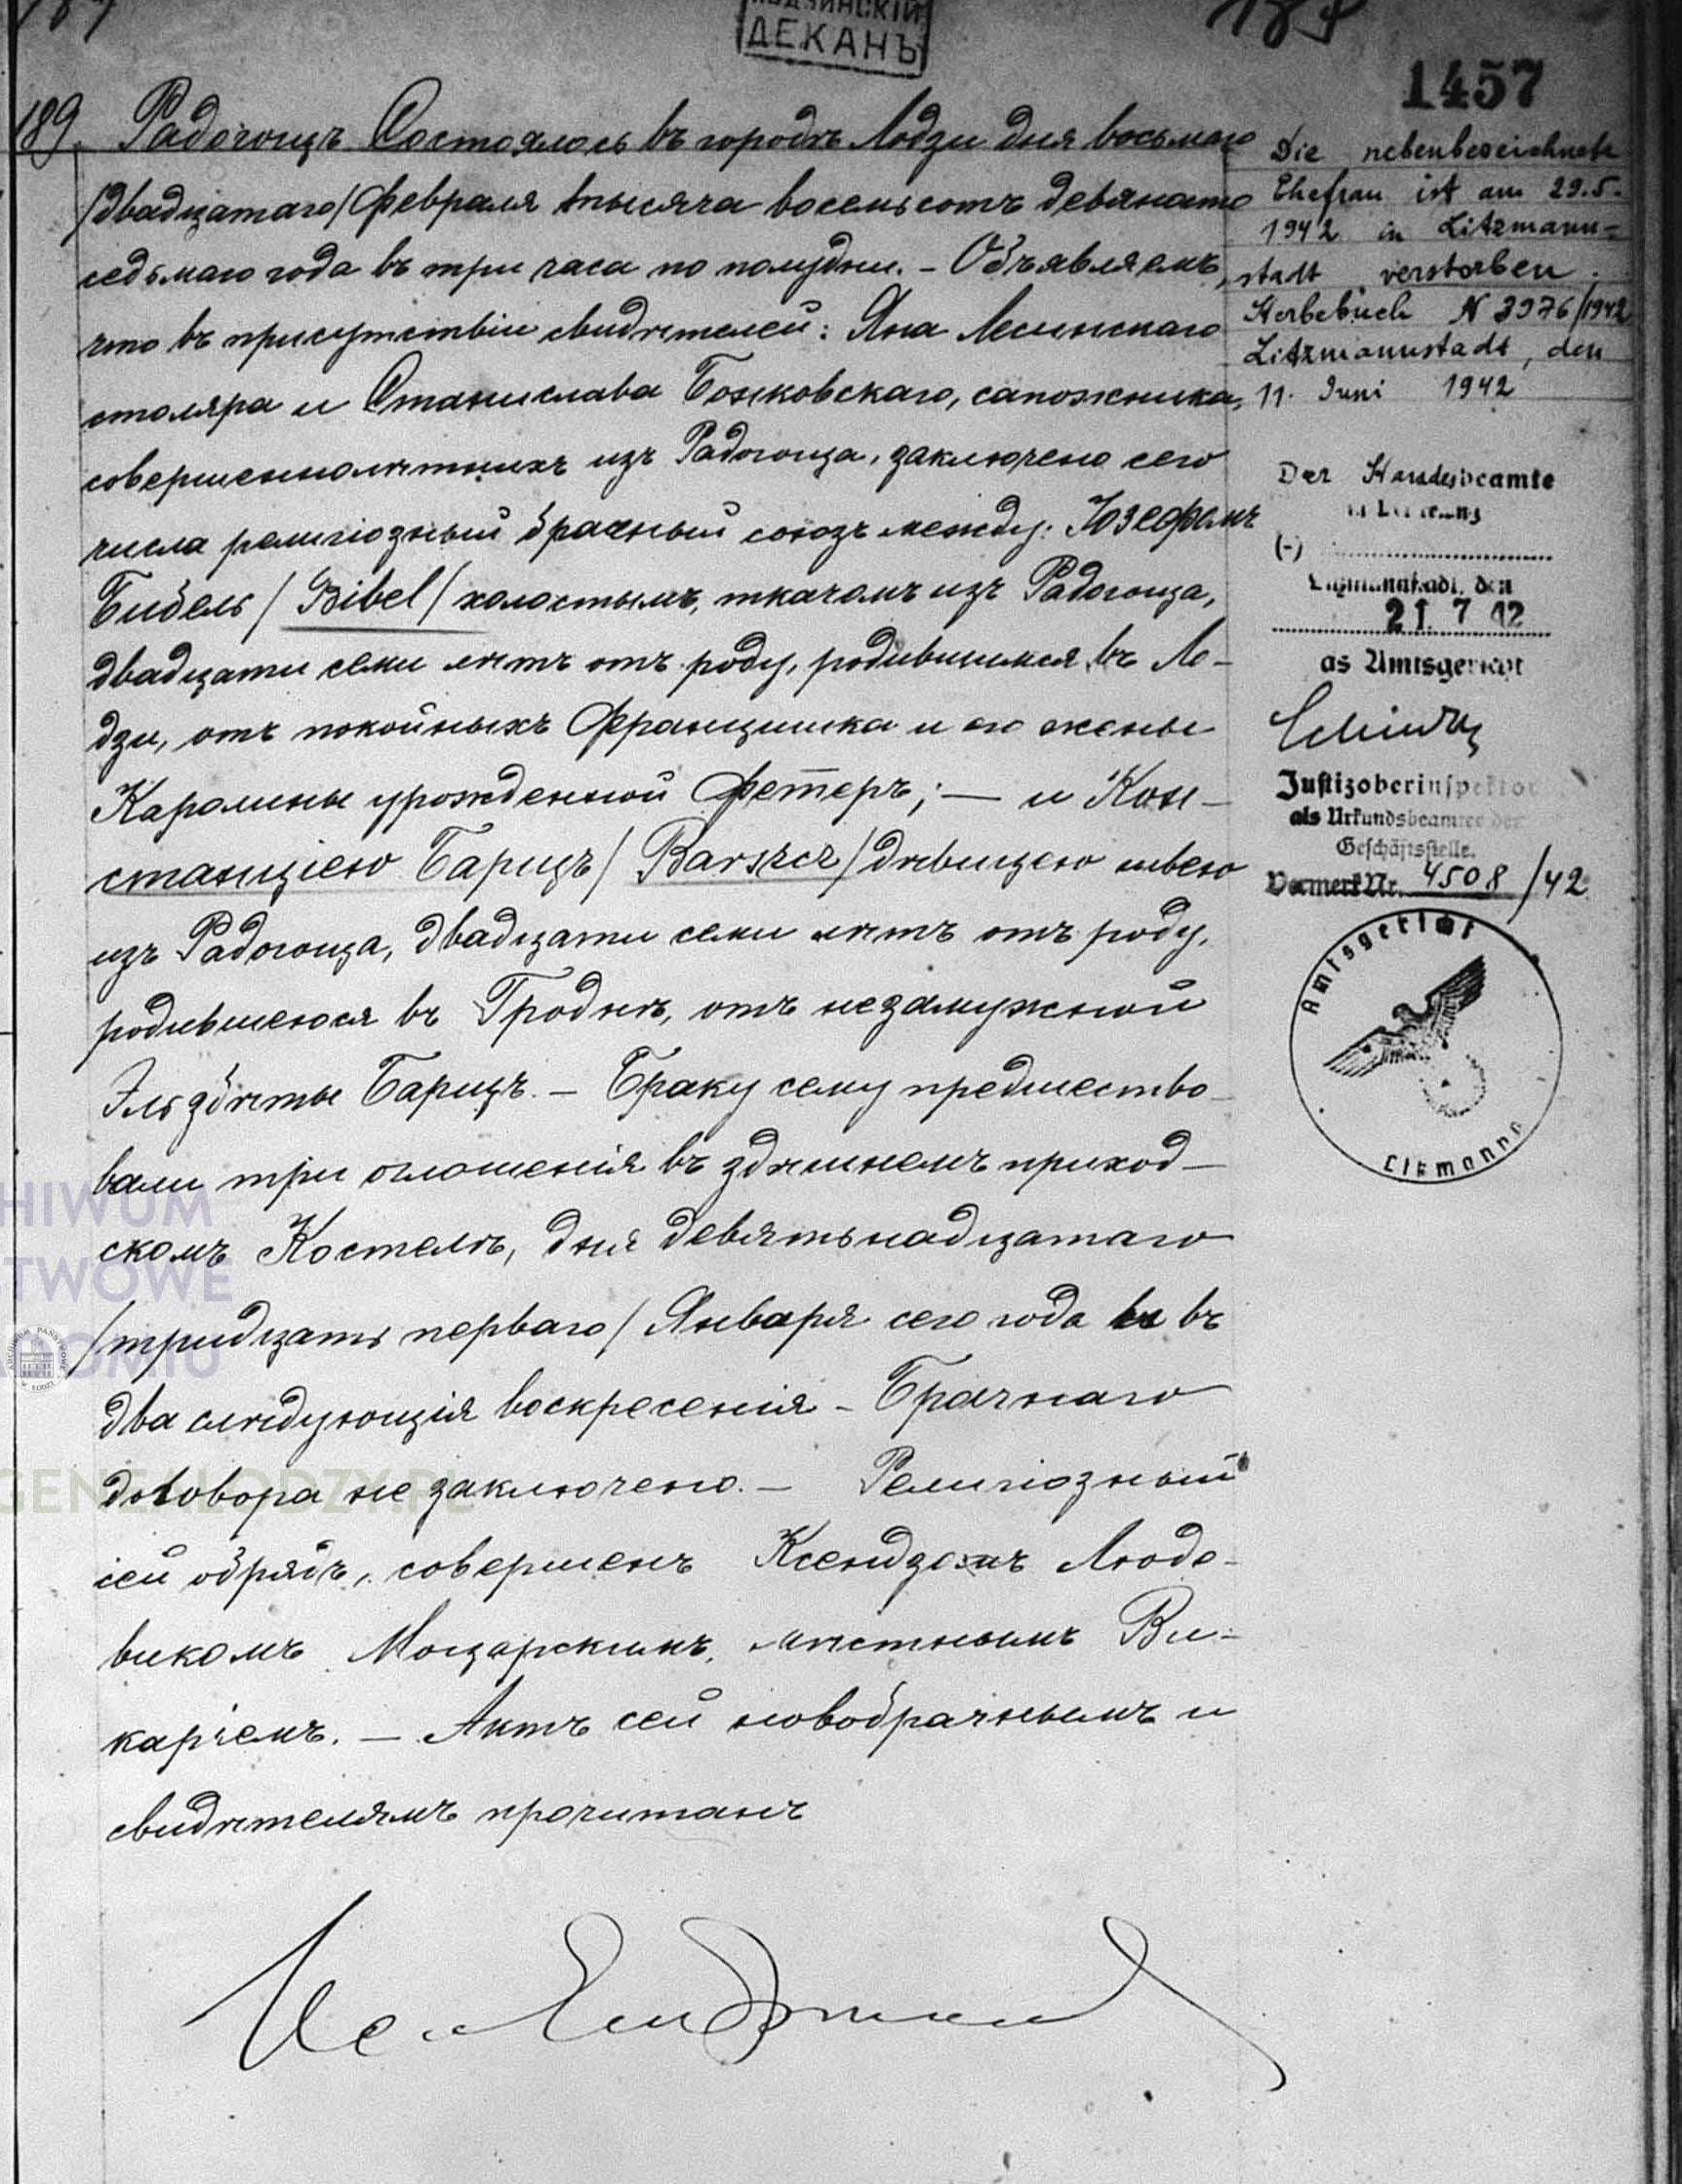 ДЕКАНЪ
1457
189. Радогощъ Состоялось въ городѣ Лодзи дня восьмаго
/двадцатаго/ Февраля тысяча восемьсотъ девяносто
седьмаго года въ три часа по полудни. – Объявляемъ,
что въ присутствіи свидѣтелей: Яна Лесинскаго
столяра и Станислава Божковскаго, сапожника,
совершеннолѣтнихъ изъ Радогоща, заключено сего
числа религіозный брачный союзъ между: Юзефомъ
Бибель / Bibel / холостымъ, ткачомъ изъ Радогоща,
двадцати семи лѣтъ отъ роду, родившимся въ Ло-
дзи, отъ покойныхъ Францишка и его жены
Каролины урожденной Фетеръ; — и Кон-
станціею Барщъ / Barszcz / дѣвицею швею
изъ Радогоща, двадцати семи лѣтъ отъ роду,
родившеюся въ Гроднѣ, отъ незамужной
Эльзбѣты Барщъ. – Браку сему предшество-
вали три оглошенія въ здѣшнемъ приход-
скомъ Костелѣ, дня девятьнадцатаго
/тридцать перваго/ Января сего года и въ
два слѣдующія воскресенія – Брачнаго
договора не заключено. – Религіозный
сей обрядъ, совершенъ Ксендземъ Людо-
викомъ Моцарскимъ, мѣстнымъ Ви-
каріемъ. – Актъ сей новобрачнымъ и
свидѣтелямъ прочитанъ
Die nebenbezeichnete
Ehefrau ist am 29.5.
1942 in Litzmann-
stadt verstorben.
Sterbebuch N 3976/1942
Litzmannstadt, den
11. Juni 1942
Der Standesbeamte
(-)
Litzmannstadt, den
21. 7 42
Das Amtsgericht
Justizoberinspektor
als Urkundsbeamter der
Geschäftsstelle.
Vermerk Nr. 4508/42
Amtsgericht
Litzmanns